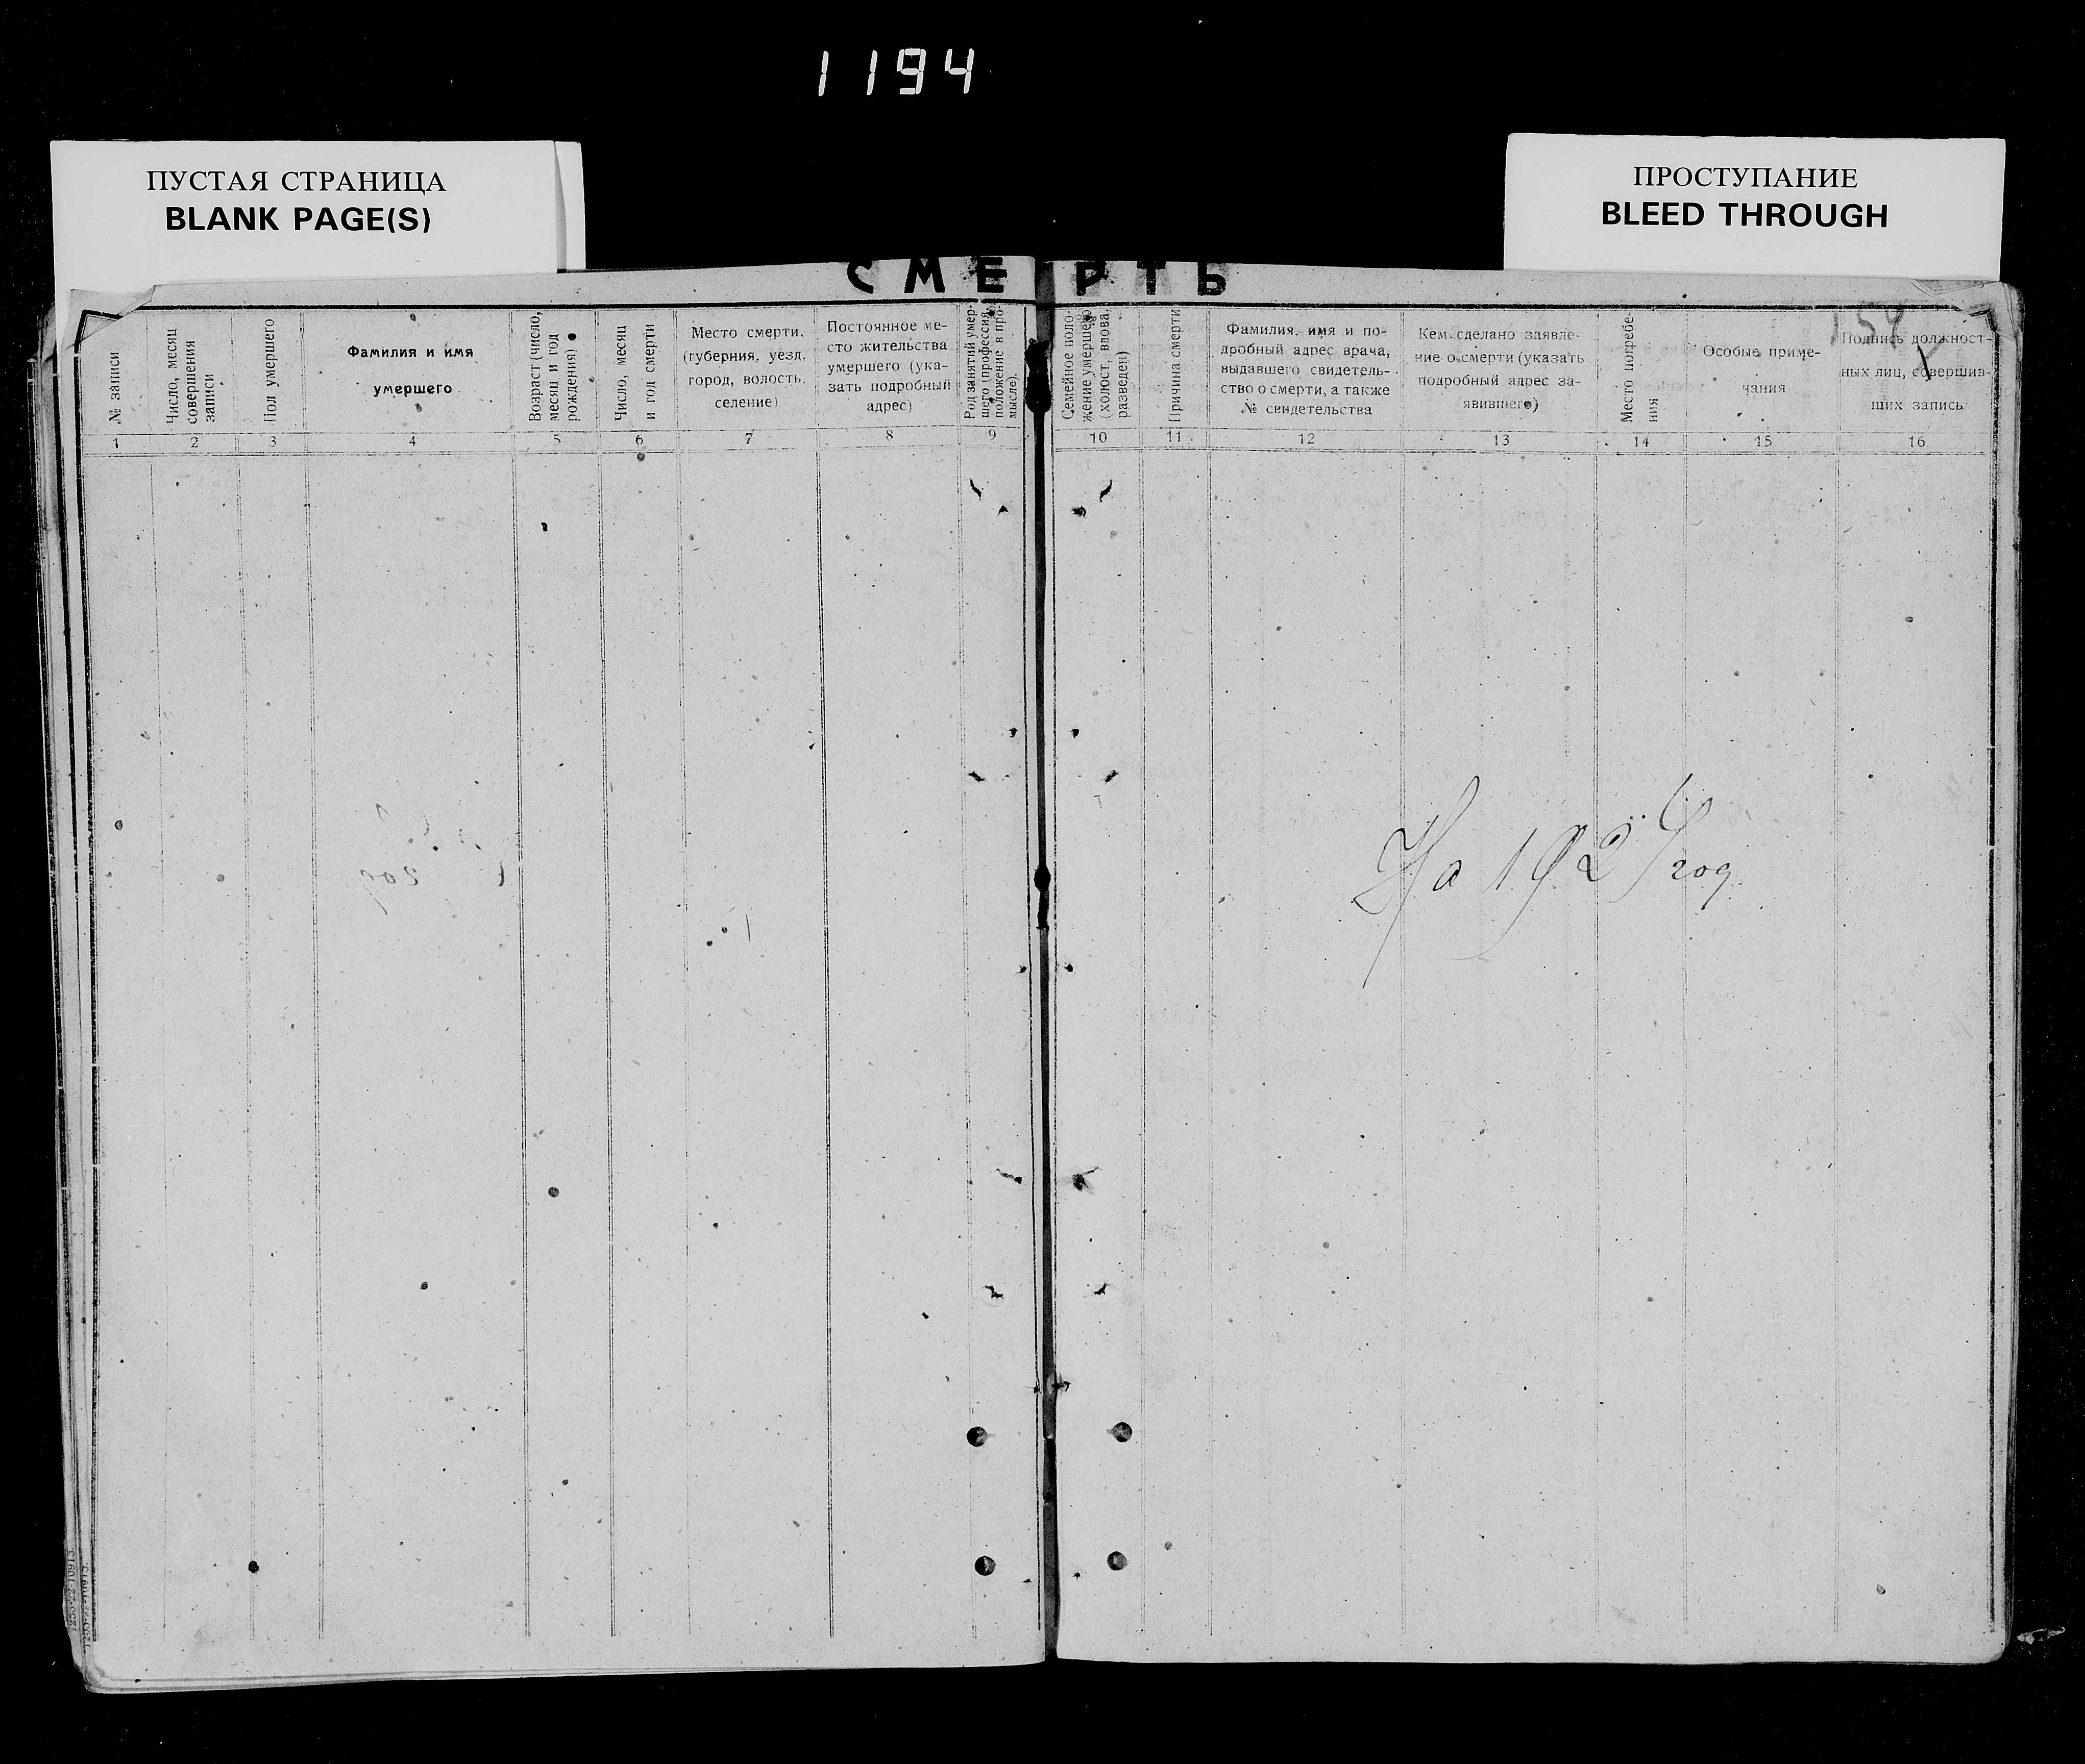 1194
ПУСТАЯ СТРАНИЦА
BLANK PAGE(S)
ПРОСТУПАНИЕ
BLEED THROUGH
СМЕРТЬ
№ записи
Число, месяц
совершения
записи
Пол умершего
Фамилия и имя
умершего
Возраст (число,
месяц и год
рождения)
Число, месяц
и год смерти
Место смерти,
(губерния, уезд,
город, волость,
селение)
Постоянное ме-
сто жительства
умершего (ука-
зать подробный
адрес)
Род занятий умер-
шего (профессия,
положение в про-
мысле).
Семейное поло-
жение умершего
(холост, вдова,
разведен)
Причина смерти
Фамилия, имя и по-
дробный адрес врача,
выдавшего свидетель-
ство о смерти, а также
№ свидетельства
Кем сделано заявле-
ние о смерти (указать
подробный адрес за-
явившего)
Место погребе
ния
Особые приме-
чания
Подпись должност-
ных лиц, совершив-
ших запись
1 2 3 4 5 6 7 8 9 10 11 12 13 14 15 16
На 192 год